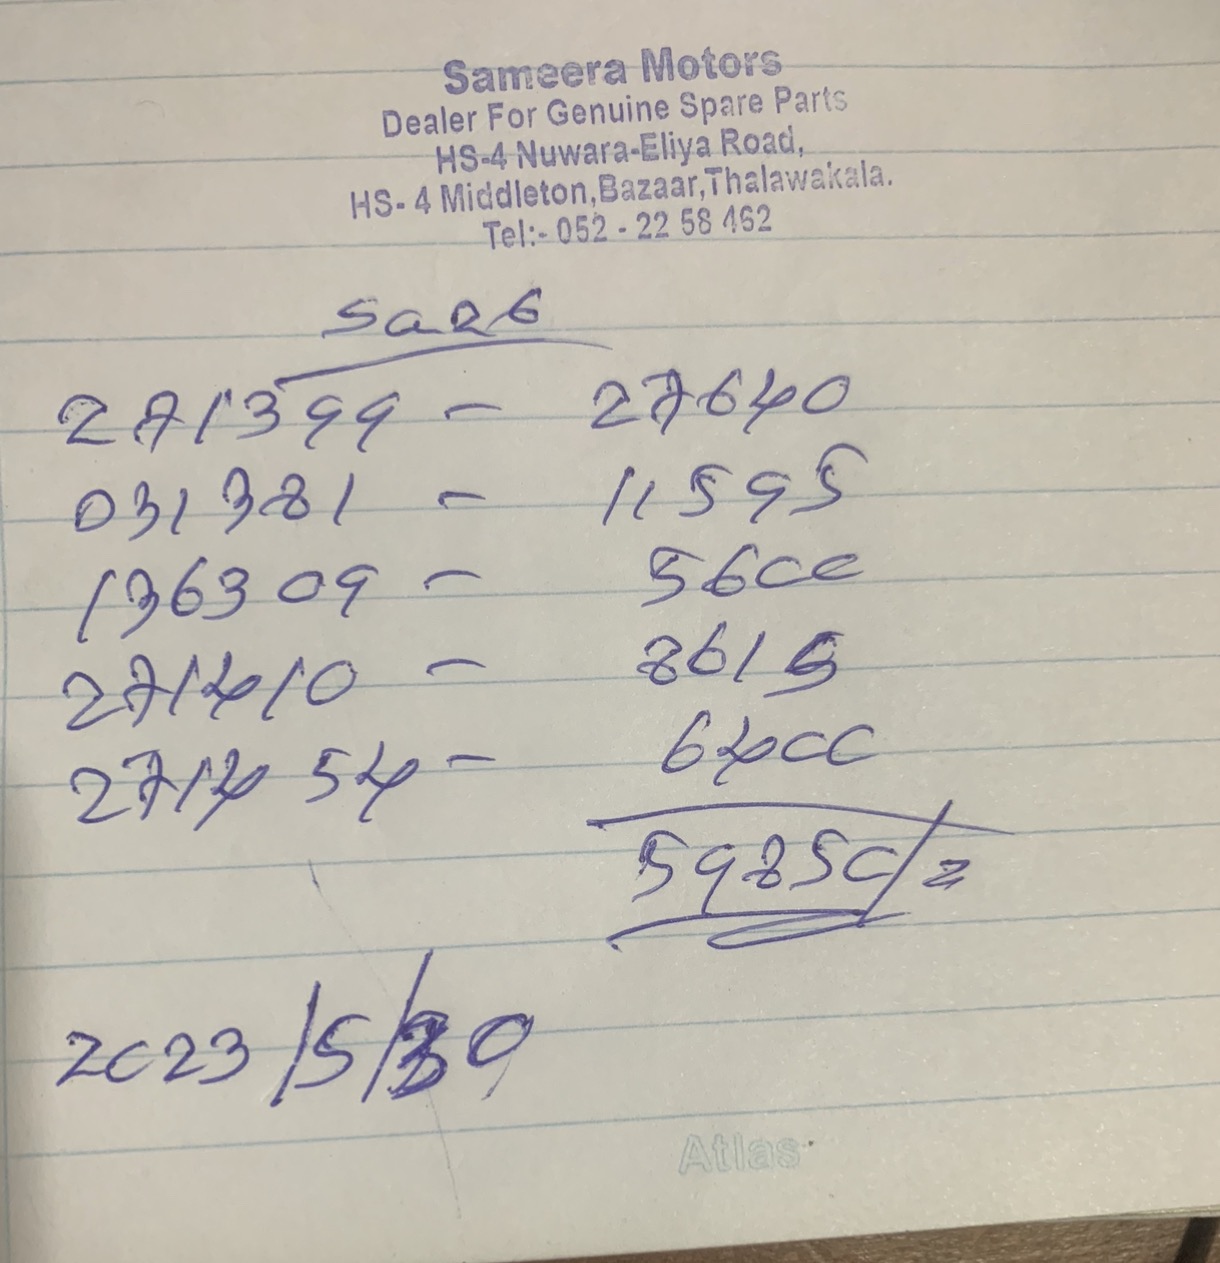 Sameera Motors
Dealer For Genuine Spare Parts
HS-4 Nuwara-Eliya Road,
HS- 4 Middleton,Bazaar,Thalawakala.
Tel:- 052 - 22 58 462
Sale
271399 - 27640
031381 - 11595
136309 - 5600
271410 - 8615
271454 - 6400
59850/=
2023/5/30
Atlas